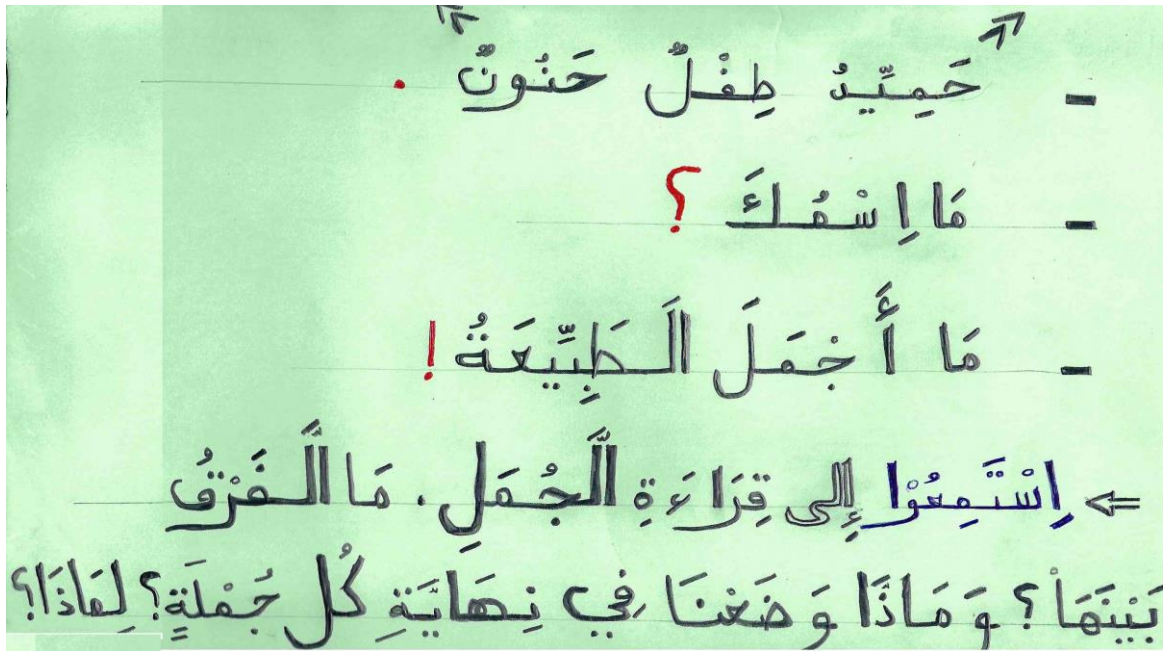 - حَمِيِّدُ طِفْلٌ حَنُونٌ .
- مَا اِسْمُكَ ؟
- مَا أَجْمَلَ اَلطَبِّيعَةُ !
⇐ اِسْتَمِعُوْا إِلى قِرَاءَةِ الَّجُمَلِ. مَا الَّفَرْقُ
بَيْنَهَا ؟ وَمَاذَا وَضَعْنَا فِي نِهَايَةِ كُل جُمْلَةٍ؟ لِمَاذَا؟